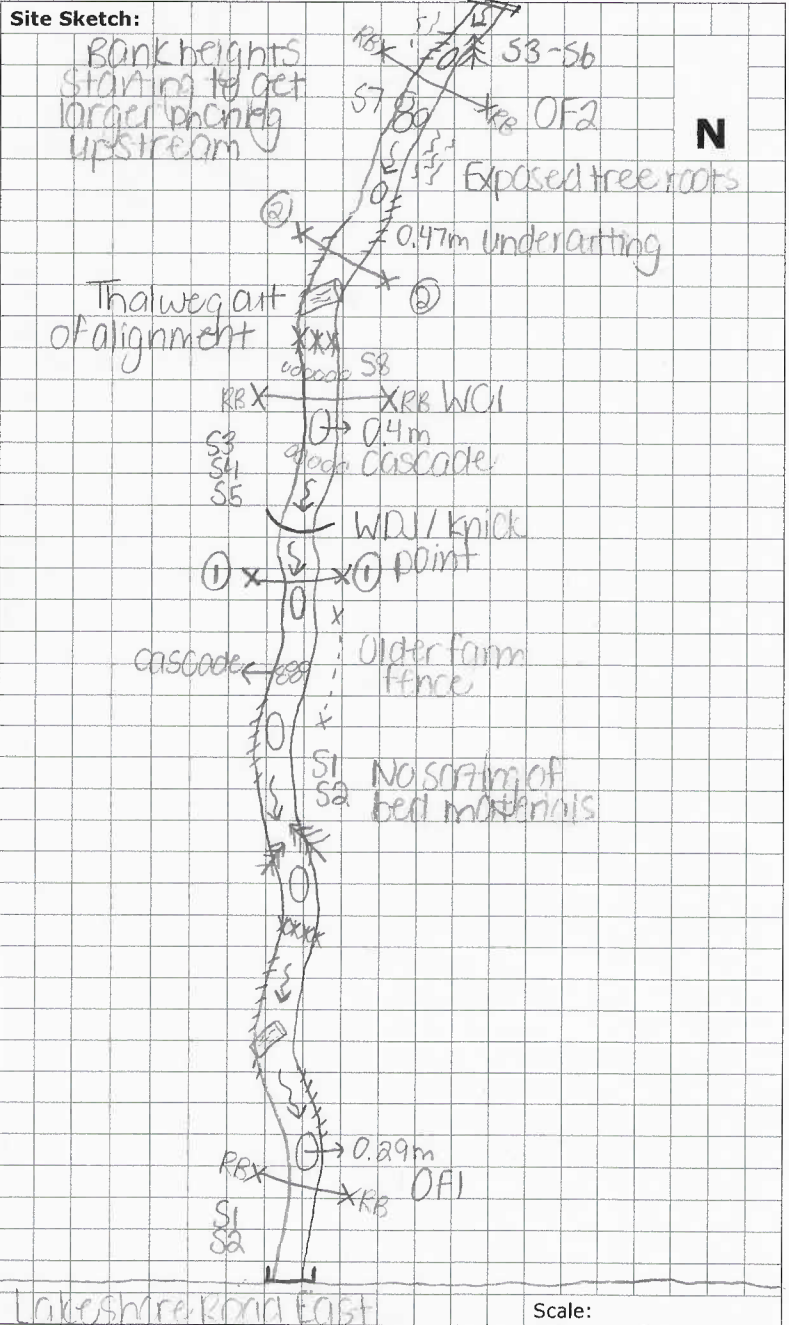 Site Sketch:
Bank heights
starting to get
larger moving
upstream
RB
S3-S6
S7
RB OF2
N
Exposed tree roots
②
0.47m undercutting
②
Thalweg out
of alignment
S8
RB
RB WC1
0.4m
cascade
S3
S4
S5
WDJ / Knick
point
①
①
Older farm
fence
cascade
S1
S2
No sorting of
bed materials
0.29m
RB
RB
OF1
S1
S2
Lakeshore Road East
Scale: